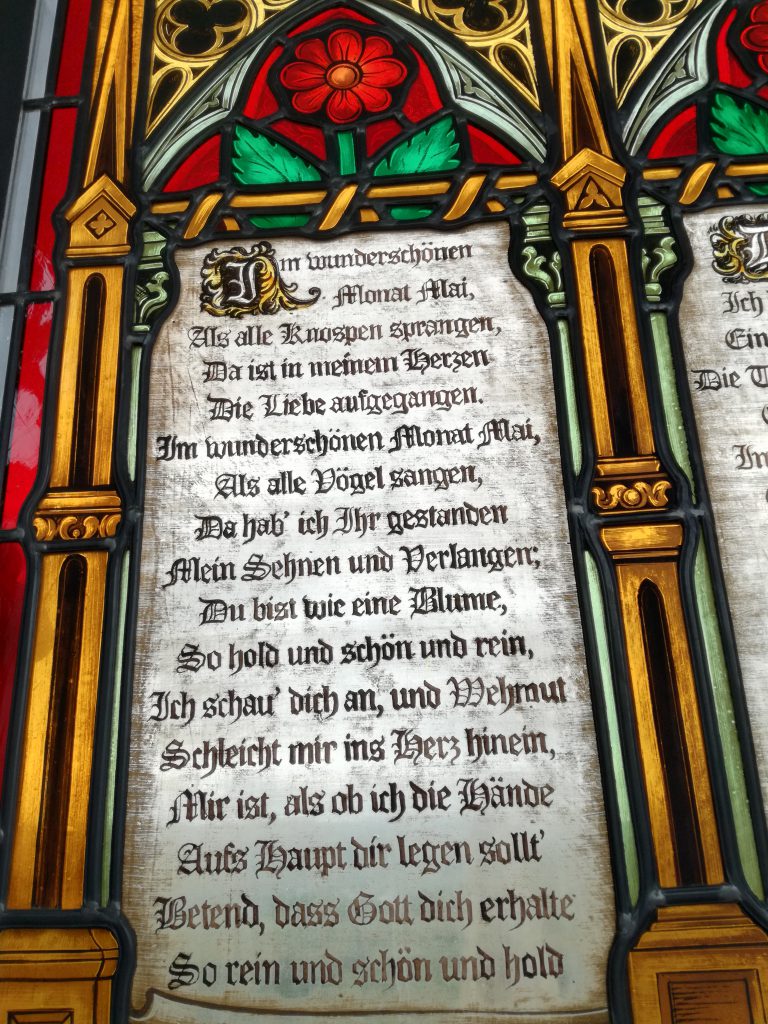 Im wunderschönen
Monat Mai,
Als alle Knospen sprangen,
Da ist in meinem Herzen
Die Liebe aufgegangen.
Im wunderschönen Monat Mai,
Als alle Vögel sangen,
Da hab' ich Ihr gestanden
Mein Sehnen und Verlangen;
Du bist wie eine Blume,
So hold und schön und rein,
Ich schau' dich an, und Wehmut
Schleicht mir ins Herz hinein,
Mir ist, als ob ich die Hände
Aufs Haupt dir legen sollt'
Betend, dass Gott dich erhalte
So rein und schön und hold
Ich
Ein
Die
Im